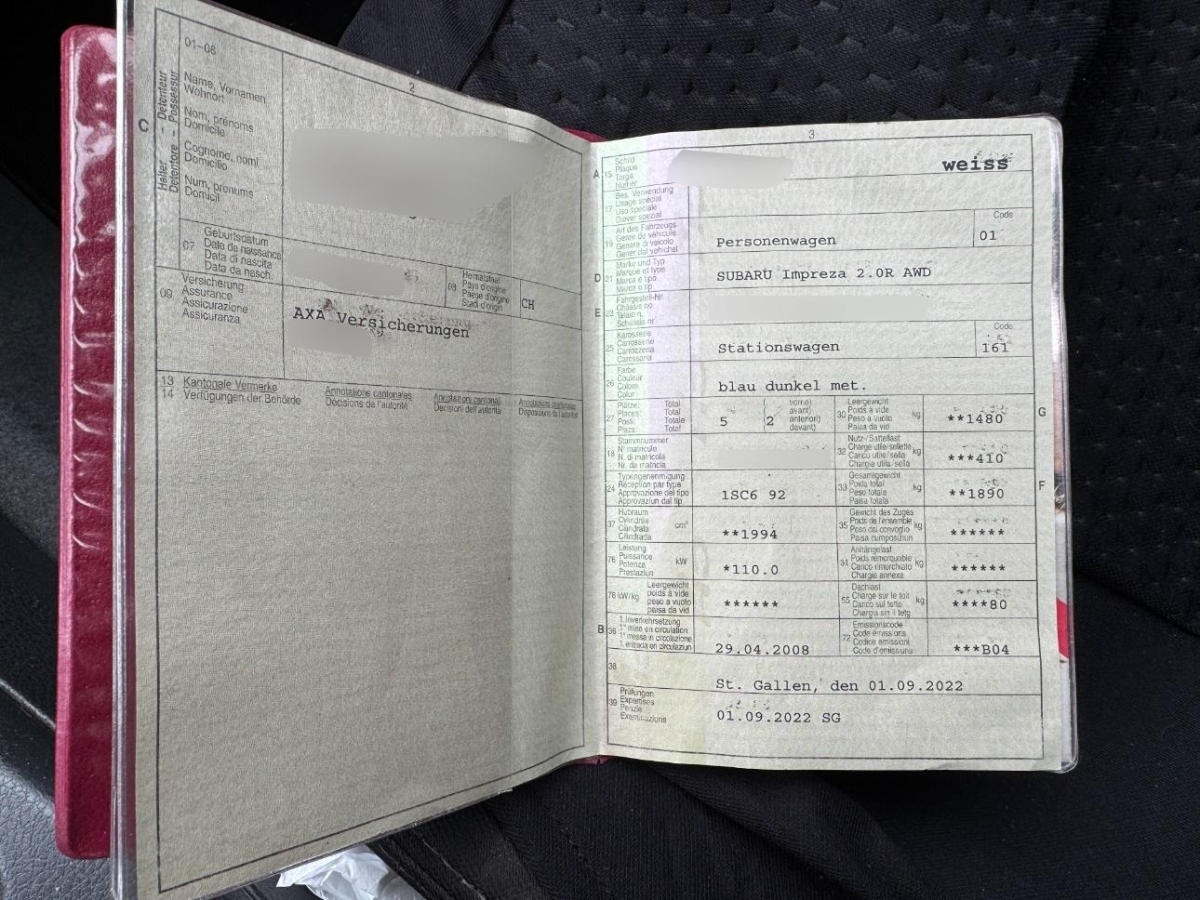 2
01-06
C
Halter - Detenteur
Detentore - Possessur
Name, Vornamen
Wohnort
Nom, prénoms
Domicile
Cognome, nomi
Domicilio
Num, prenums
Domicil
07
Geburtsdatum
Date de naissance
Data di nascita
Data da nasch.
Heimatstaat
Pays d'origine
Paese d'origine
CH
09
Versicherung
Assurance
Assicurazione
Assicuranza
AXA Versicherungen
13 Kantonale Vermerke
14 Verfügungen der Behörde
Annotations cantonales
Décisions de l'autorité
Annotazioni cantonali
Decisioni dell'autorità
3
A
15
Schild
Plaque
Targa
Numer
weiss
17
Bes. Verwendung
Usage spécial
Uso speciale
Diever spezial
19
Art des Fahrzeugs
Genre de véhicule
Genere di veicolo
Gener dal vehichel
Personenwagen
Code
01
D
21
Marke und Typ
Marque et type
Marca e tipo
Marca e tip
SUBARU Impreza 2.0R AWD
E
23
Fahrgestell-Nr.
Châssis no
Telaio n.
Schassis nr.
25
Karosserie
Carrosserie
Carrozzeria
Carossaria
Stationswagen
Code
161
26
Farbe
Couleur
Colore
Color
blau dunkel met.
27
Plätze: Total
Places: Total
Posti: Totale
Plazs: Total
5
2
(vorne)
avant)
anteriori)
davant)
30
Leergewicht
Poids à vide
Peso a vuoto
Paisa da vid
kg
**1480
G
18
Stammnummer
N° matricule
N. di matricola
Nr. da matricla
32
Nutz-/Sattellast
Charge utile/sellette
Carico utile/sella
Chargia utila/sella
kg
***410
24
Typengenehmigung
Réception par type
Approvazione del tipo
Approvaziun dal tip
1SC6 92
33
Gesamtgewicht
Poids total
Peso totale
Paisa totala
kg
**1890
F
37
Hubraum
Cylindrée
Cilindrata
Cilindrada
cm³
**1994
35
Gewicht des Zuges
Poids de l'ensemble
Peso del convoglio
Paisa cumposiziun
kg
******
76
Leistung
Puissance
Potenza
Prestaziun
kW
*110.0
31
Anhängelast
Poids remorquable
Carico rimorchiato
Chargia annexa
kg
******
78 kW/kg
Leergewicht
poids à vide
peso a vuoto
paisa da vid
******
55
Dachlast
Charge sur le toit
Carico sul tetto
Chargia sin il tetg
kg
****80
B
36
1. Inverkehrsetzung
1re mise en circulation
1a messa in circolazione
1. entrada en circulaziun
29.04.2008
72
Emissionscode
Code émissions
Codice emissioni
Code d'emissiuns
***B04
38
St. Gallen, den 01.09.2022
39
Prüfungen
Expertises
Perizie
Examinaziuns
01.09.2022 SG